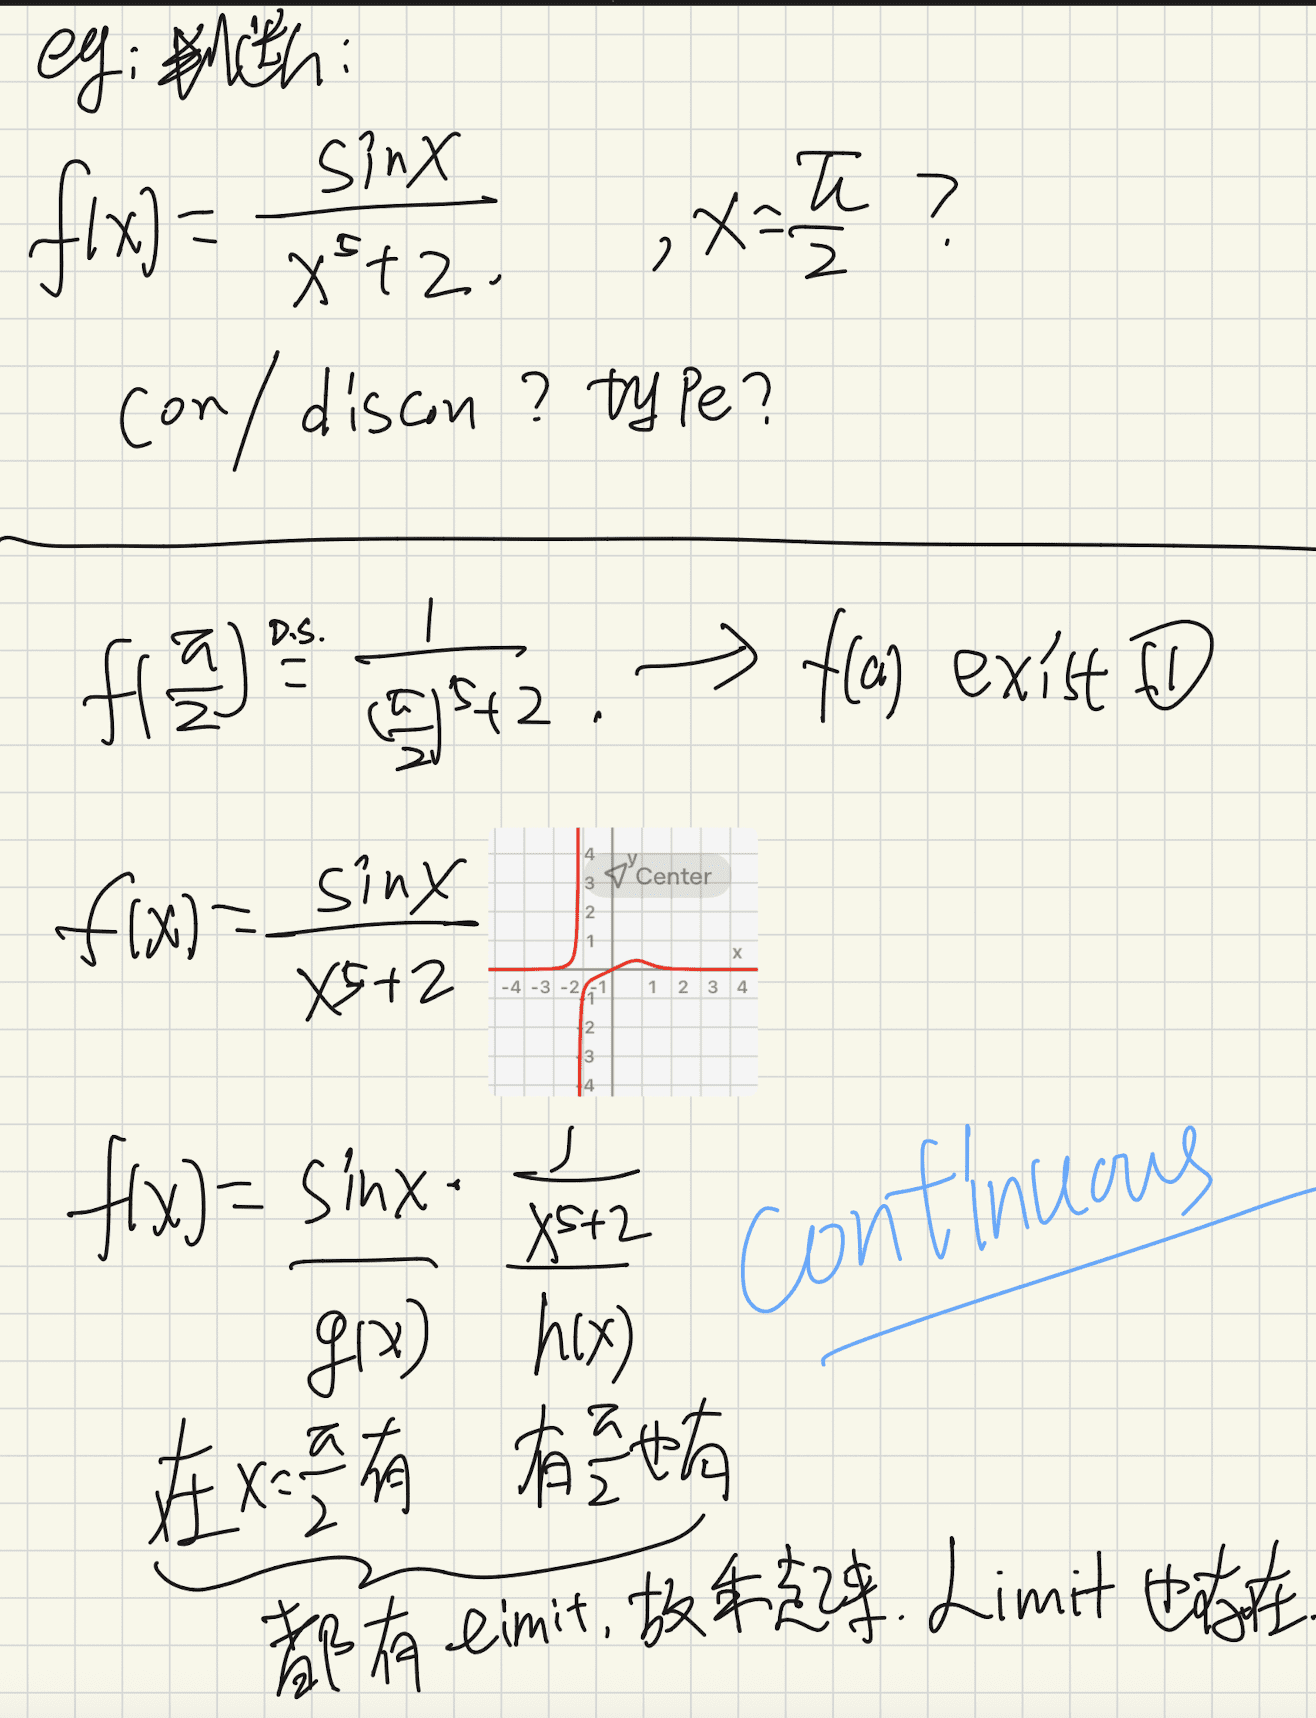 eg:
f(x) = sinx / x⁵+2. , x = π/2 ?
con/discon ? type?
f(π/2) D.S. = 1 / (π/2)⁵+2 . → f(a) exist
f(x) = sinx / x⁵+2
y Center
4
3
2
1
x
-4 -3 -2 -1 1 2 3 4
1
2
3
4
f(x) = sinx · 1 / x⁵+2
g(x) h(x)
continuous
在 x = π/2 有 有 π/2 也有
都有 limit, 故乘起来. Limit 也存在.